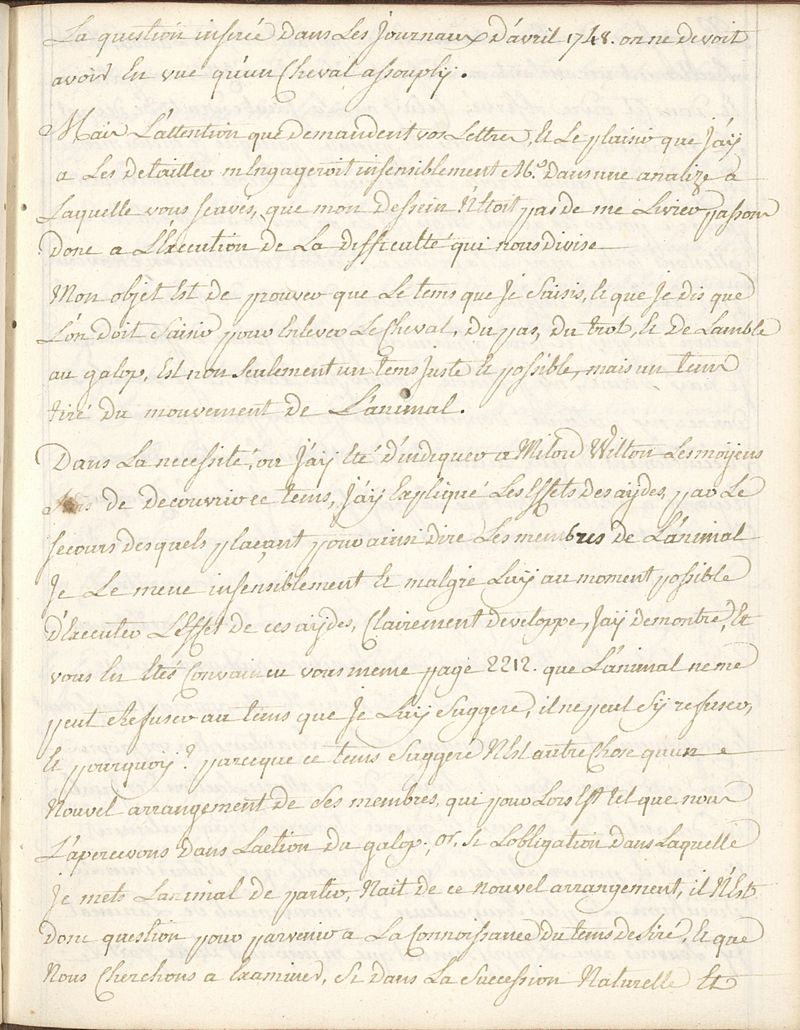 La question inserée dans les journaux d'avril 1748. on ne devoit
avoir en vue qu'un cheval assouply.
Mais l'attention que demandent vos lettres, et le plaisir que j'ay
a les detailler m'engageroit insensiblement Mr. dans une analize a
laquelle vous scavés, que mon dessein n'étoit pas de me livrer, passons
donc a l'execution de la difficulté qui nous divise
Mon objet est de prouver que le tems que je saisis, et que je dis que
l'on doit saisir pour enlever le cheval, du pas, du trot, et de l'amble
au galop, est non seulement un tems juste et possible, mais un tems
tiré du mouvement de l'animal.
Dans la necessité, ou j'ay eté d'indiquer a Milord Wilton les moyens
de decouvrir ce tems, j'ay expliqué les effets des aydes, par le
secours des quels plaçant pour ainsi dire les membres de l'animal
je le mene insensiblement et malgre luy au moment possible
d'executer l'effet de ces aydes, clairement developpe, j'ay demontré, et
vous en etés convaincu vous meme page 2212. que l'animal ne me
peut refuser au tems que je luy suggere, il ne peut s'y refuser,
et pourquoy? parceque ce tems suggeré n'est autre chose qu'un
nouvel arrangement de ses membres, qui pour lors est tel que nous
l'apercevons dans l'action du galop; or, si l'obligation dans laquelle
je mets l'animal de partir, nait de ce nouvel arrangement, il n'est
donc question pour parvenir a la connoissance du tems desiré, et que
nous cherchons a examiner, si dans la succession naturelle et